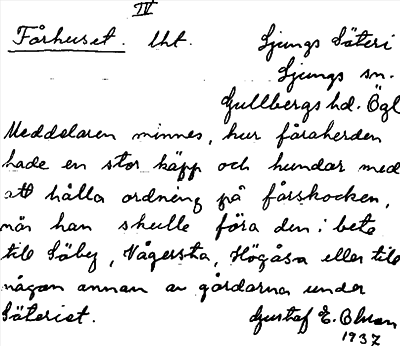 IV
Fårhuset. Uht. Ljungs Säteri
Ljungs sn.
Gullbergs hd. Ögl
Meddelaren minnes, hur fåraherden
hade en stor käpp och hundar med
att hålla ordning på fårskocken,
när han skulle föra den i bete
till Säby, Vågersta, Högåsa eller till
någon annan av gårdarna under
Säteriet. Gustaf E. Olsson
1937